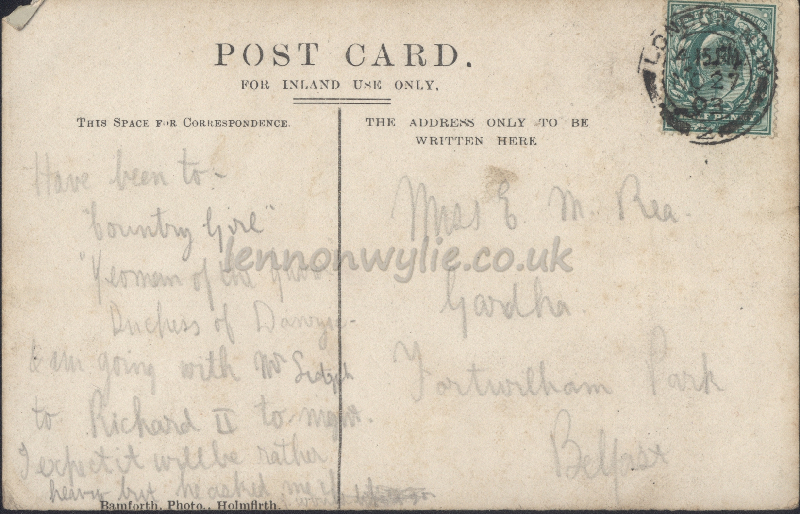 POST CARD.
FOR INLAND USE ONLY.
THIS SPACE FOR CORRESPONDENCE.
THE ADDRESS ONLY TO BE
WRITTEN HERE
Have been to -
"Country Girl"
"Yeoman of the
Duchess of
& am going with Mr
to Richard II to night.
I expect it will be rather
heavy but he asked me
Miss E. M. Rea.
Gardha
Fortwilliam Park
Belfast
Bamforth, Photo., Holmfirth.
lennonwylie.co.uk
LONDON
27